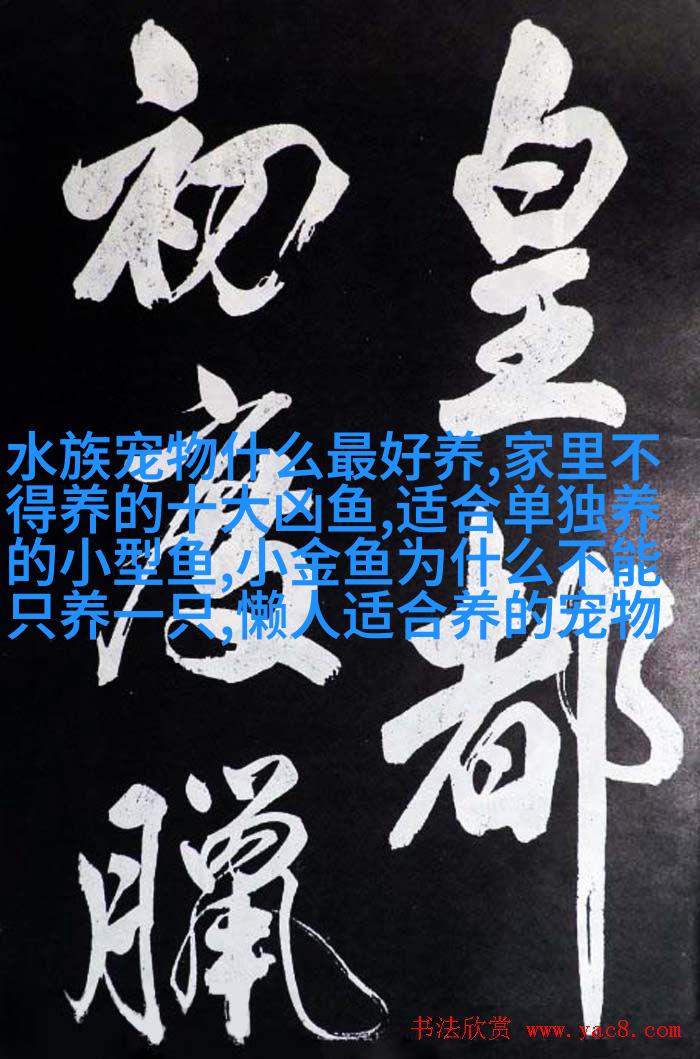 皇都
初度臘
水族宠物什么最好养,家里不
得养的十大凶鱼,适合单独养
的小型鱼,小金鱼为什么不能
只养一只,懒人适合养的宠物
书法欣赏 www.yac8.com